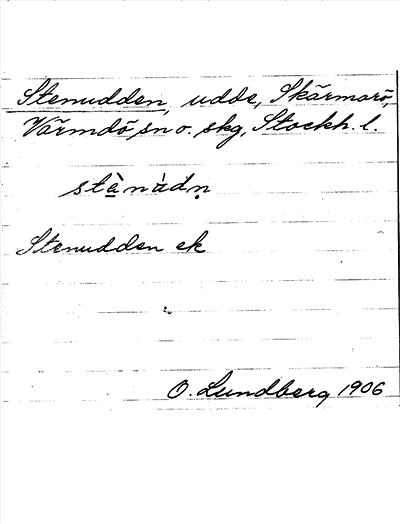 Stenudden, udde, Skärmarö,
Värmdö sn o. skg, Stockh. l.
stànàdn̥
Stenudden ek
O. Lundberg 1906